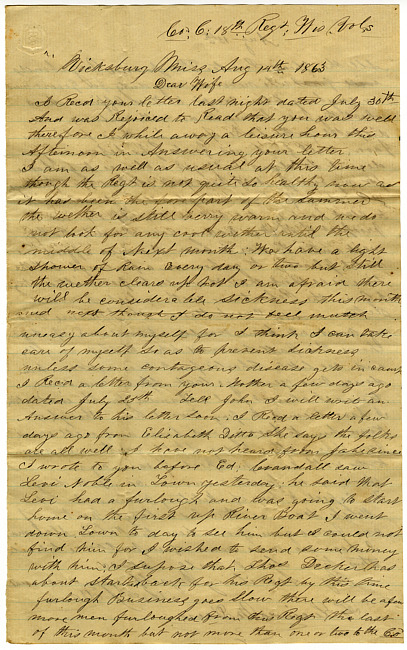 Co. C. 18th Regt, Wis Vols
Vicksburg Miss Aug 14th 1863
Dear Wife
I Recd your letter last night dated July 30th
And was Rejoiced to Read that you was well
therefore I while away a leisure hour this
Afternoon in Answering your letter
I am as well as usual at this time
though the Regt is not quite so healthy now as
it has been the fore part of the summer
the wether is still very warm and we do
not look for any cool wether until the
middle of Next month We have a light
shower of Rain every day or two but still
the wether clears up hot I am afraid there
will be considerable sickness this month
and next though I do not feel much
uneasy about myself for I think I can take
care of myself so as to prevent sickness
unless some contageous disease gets in camp
I Recd a letter from your Mother a few days ago
dated July 25th tell John I will writ an
Answer to his letter soon. I Recd a letter a few
days ago from Elisabeth Ditto She says the folks
are all well I have not heard from since
I wrote to you before Ed. Crandall saw
Levi Noble in Town yesterday. he said that
Levi had a furlough and was going to start
home on the first up River Boat I went
down Town to day to see him but I could not
find him for I wished to send some money
with him. I supose that Thos Decker has
about started back for his Regt by this time
furlough Business goes slow there will be a few
more men furloughed from this Regt the last
of this month but not more than one or two to the Co